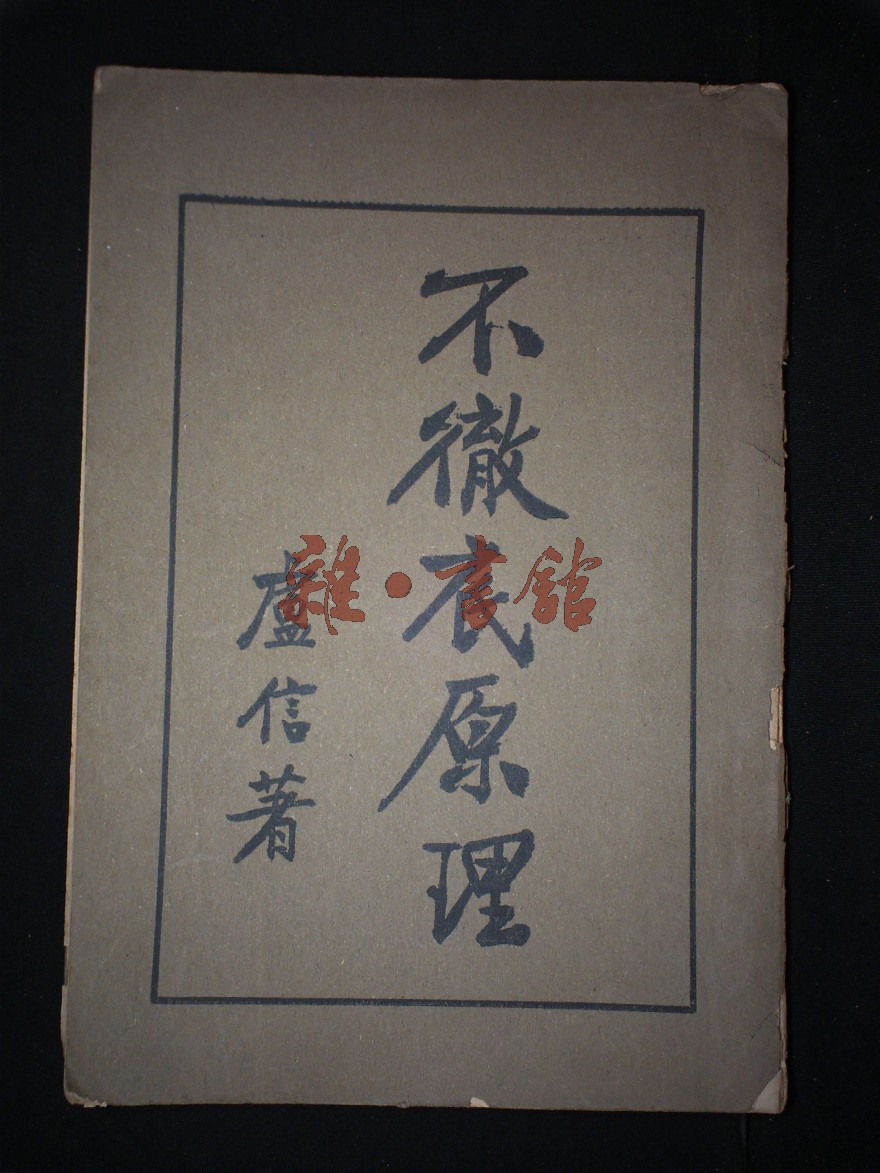 不徹底原理
盧信著
雜·書館